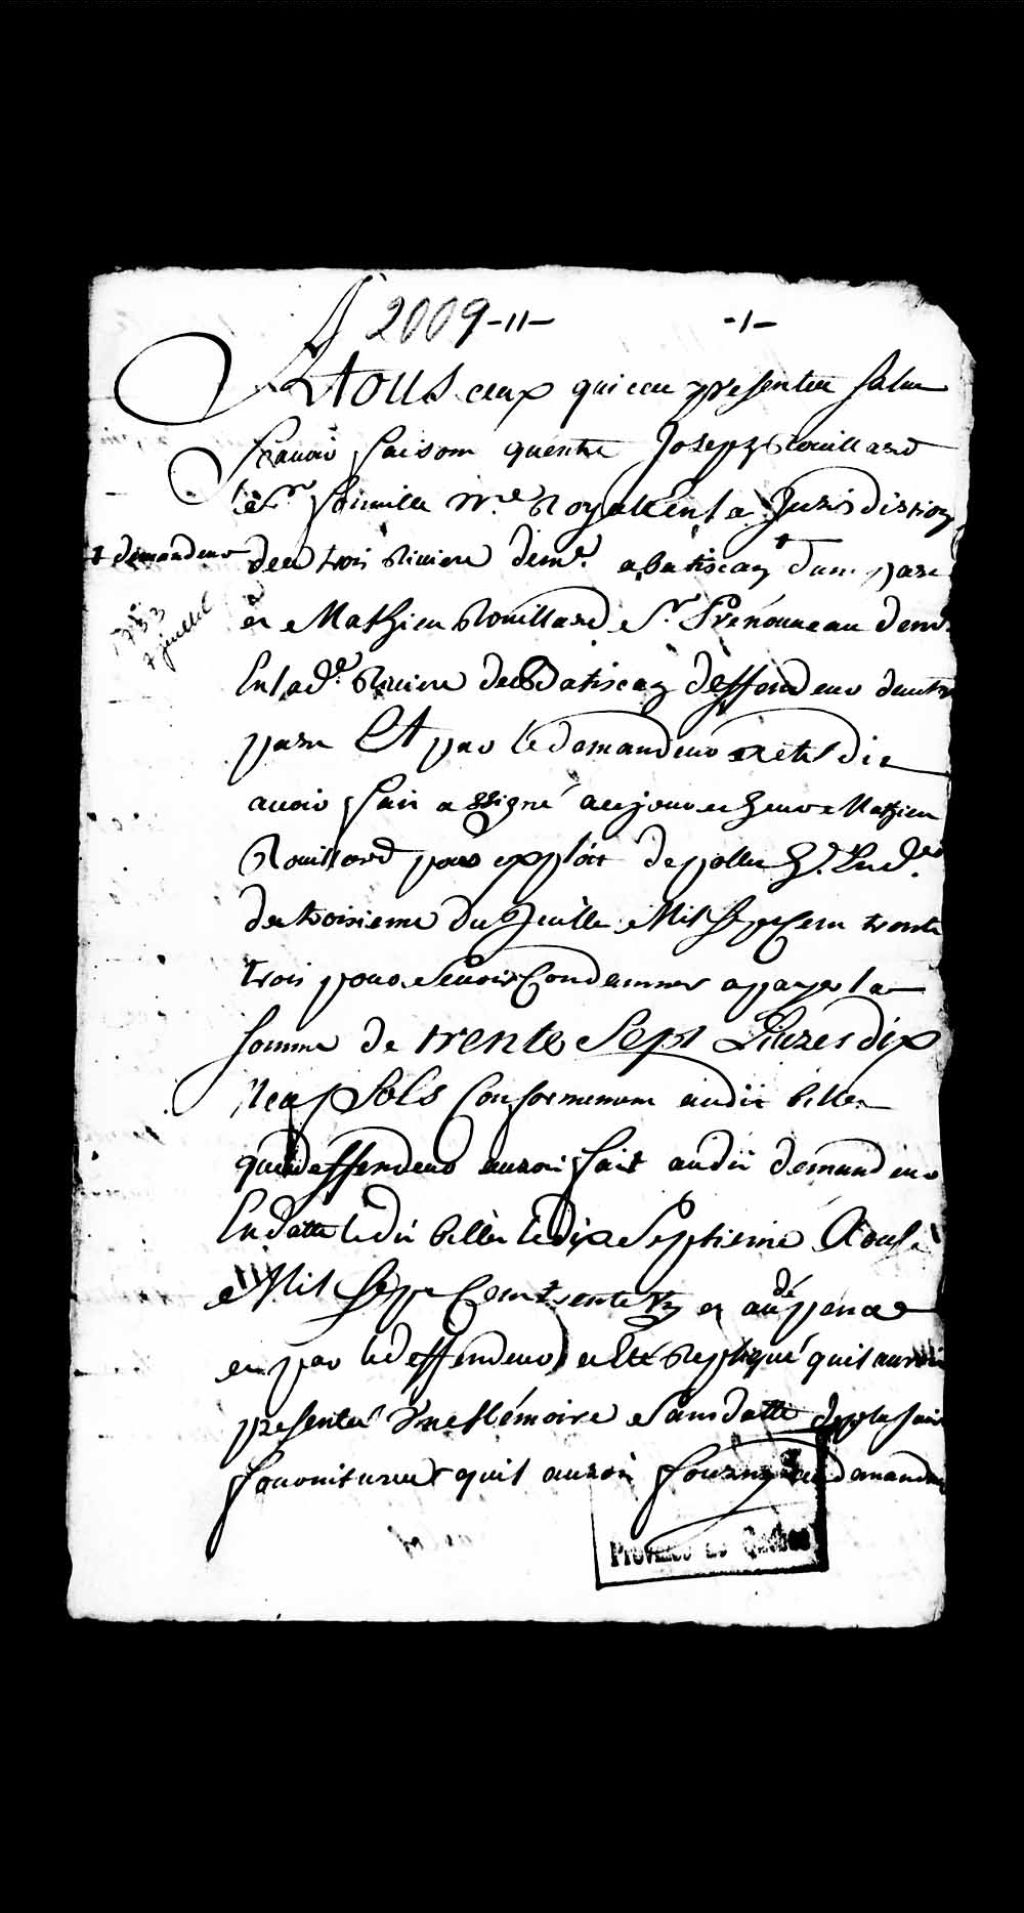 2009-11-
-1-
A tous ceux qui ces presentes salut
scavoir faisons quentre Joseph Rouillard
Sr fonville Nre Royal En la Jurisdiction
+ demandeur
des trois Riviere demt a batiscan + dune part
1733
7 juillet
et Mathieu Rouillard Sr Prenouveau demt
En lade Riviere de Batiscan deffendeur dautre
part Et par le demandeur a esté dit
avoir fait assigné au jour et heure Mathieu
Rouillard par exploit de pollet hr
du troisieme du Juillet Mil Sept Cent trente
trois pour se voir Condamner a payer la
somme de trente Sept Livres dix
Sols Conformement audit billet
que deffendeur auroit fait audit demandeur
En datte ledit billet le dix Septieme Aoust
Mil Sept Cent trente Un et au dépence
et par le deffendeur a Esté Repliqué quil auroit
presenter Une Mémoire Sans datte
fournitures quil auroit fourny au demandeur
Province de Québec